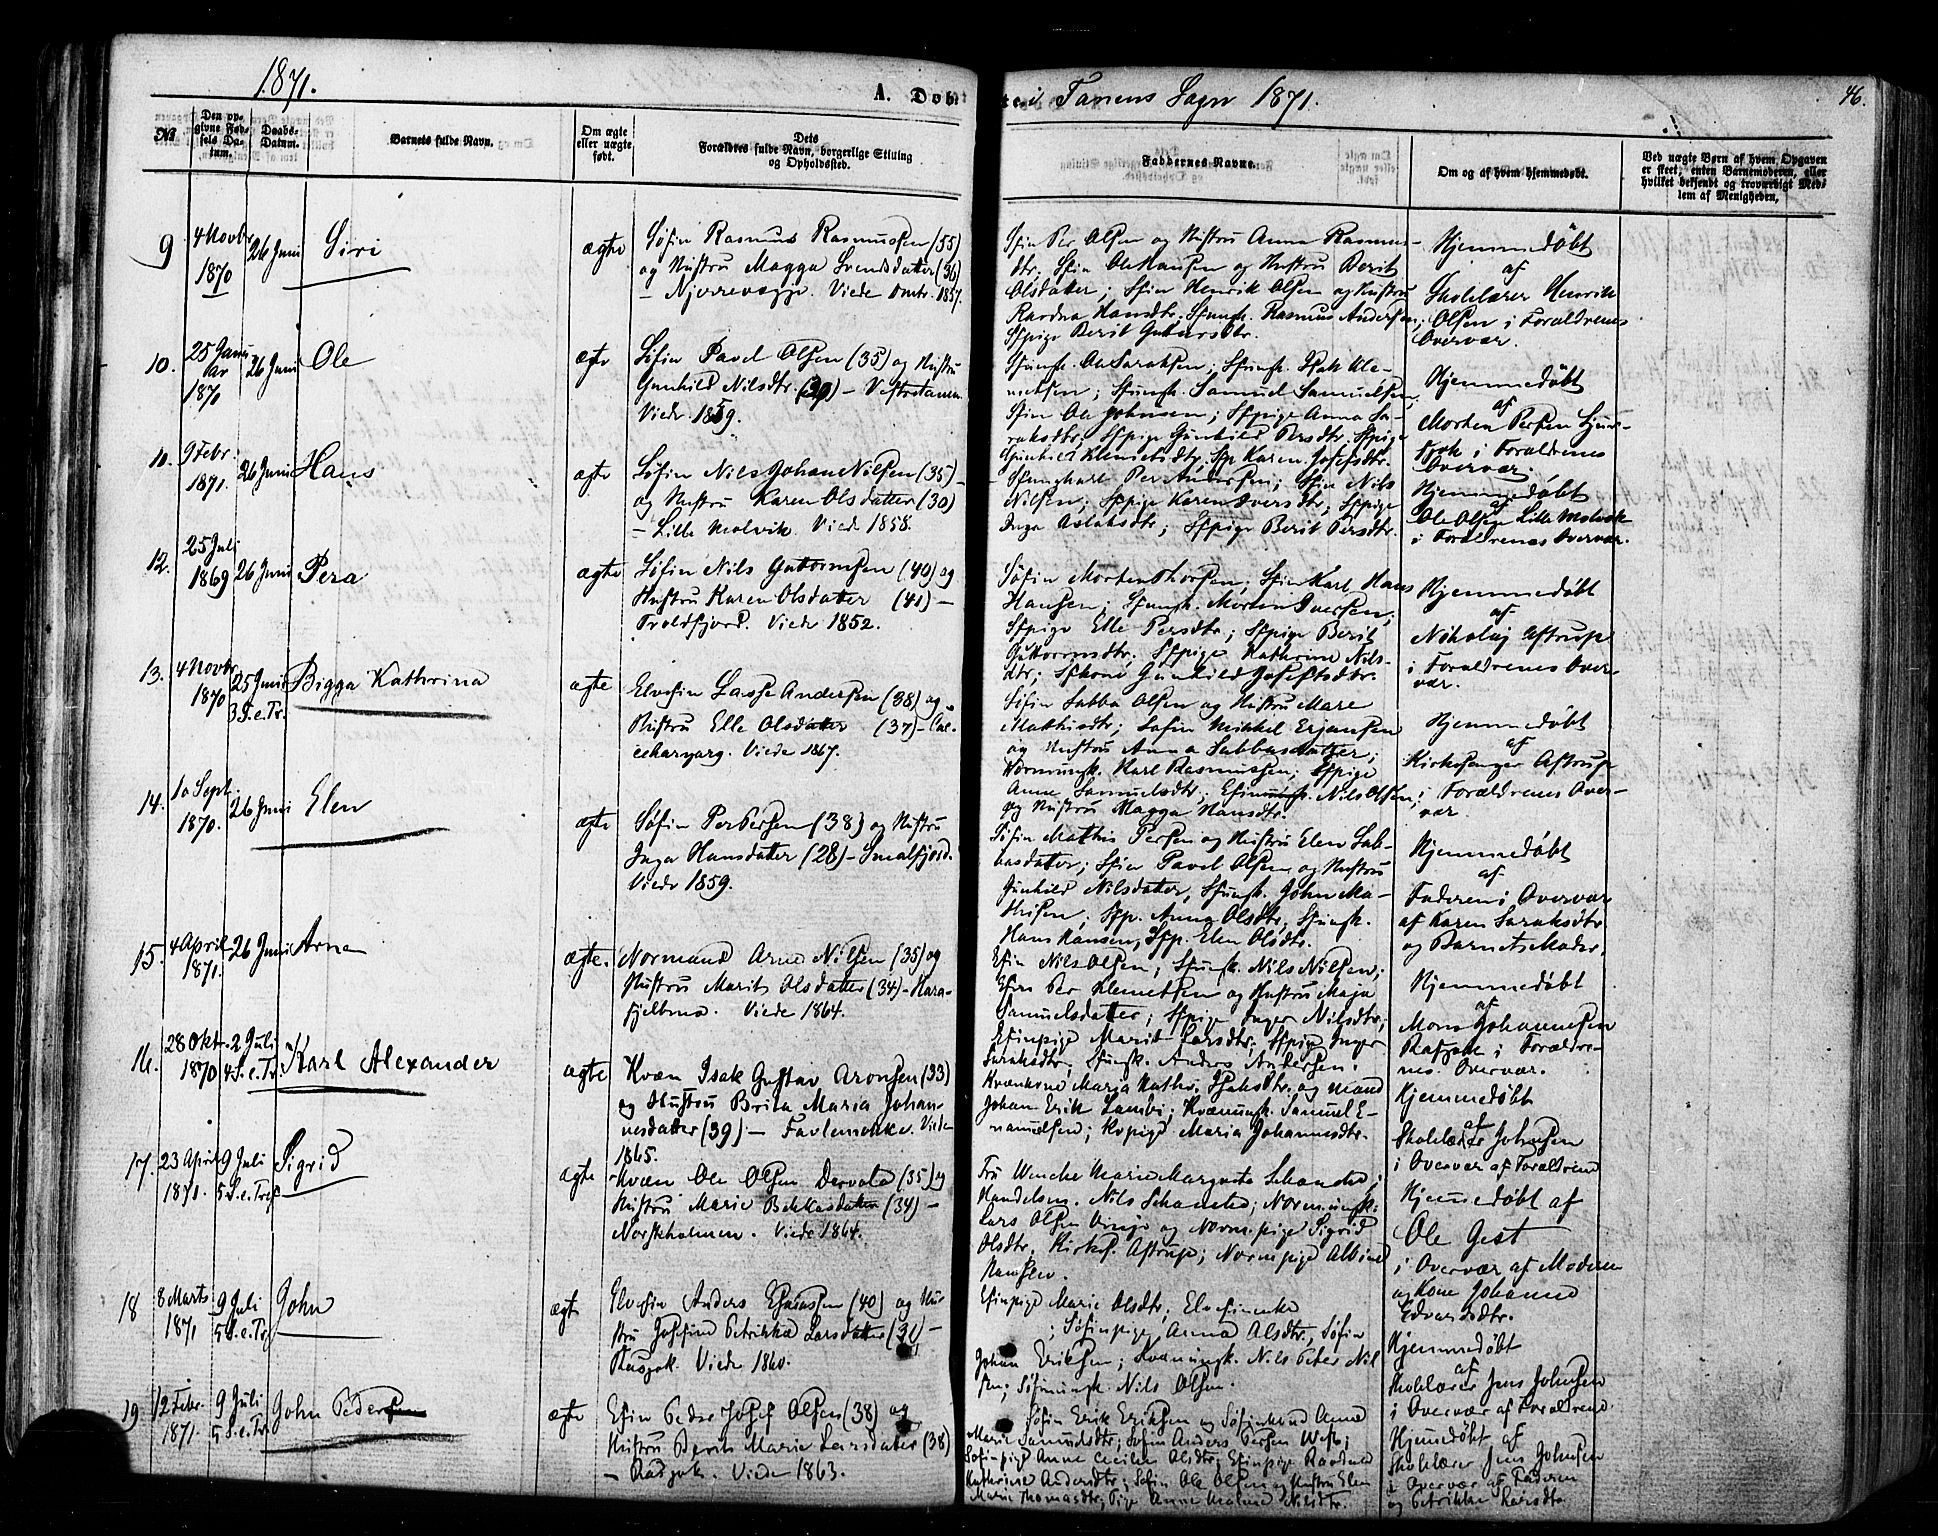 1871.
A. Døbte i Tanens Sogn 1871.
46.
№
Den op-
givne Fød-
sels Da-
tum.
Daabs-
Datum.
Barnets fulde Navn.
Om ægte
eller uægte
født.
Dets
Forældres fulde Navn, borgerlige Stilling
og Opholdssted.
Faddernes Navne.
Om og af hvem hjemmedøbt.
Ved uægte Børn af hvem Opgaven
er skeet; enten Barnemoderen, eller
hvilket bekjendt og troværdigt Med-
lem af Menigheden.
9
4 Novbr
1870
26 Juni
Siri
ægte
Søfin Rasmus Rasmussen (55)
og Hustru Magga Svendsdatter (36)
– Njorrevagge. Viede omtr. 1857.
Sfin Per Olsen og Hustru Anna Rasmus-
dtr; Sfin Ole Hansen og Hustru Berit
Olsdatter; Sfin Henrik Olsen og Hustru
Ravdna Hansdtr; Sfungk. Rasmus Andersen;
Sfpige Berit Guttormsdtr.
Hjemmedøbt
af
Skolelærer Henrik
Olsen i Forældrenes
Overvær.
10.
25 Janu
ar
1870
26 Juni
Ole
ægte
Søfin Pavel Olsen (35) og Hustru
Gunhild Nilsdtr. (39) – Vestretanen
Viede 1859.
Sfungk. Ole Saraksen; Sfungk. Isak Kle-
metsen; Sfungk. Samuel Samuelsen;
Sfin Ole Johnsen; Sfpige Anna Sa-
raksdtr; Sfpige Gunhild Persdtr; Sfpige
Gunhild Klemetsdtr; Sfp Karen Josefsdtr.
Hjemmedøbt
af
Morten Persen
i Forældrenes
Overvær.
11.
9 Febr.
1871.
26 Juni
Hans
ægte
Søfin Nils Johan Nilsen (35)
og Hustru Karen Olsdatter (30)
– Lille Molvik. Viede 1858.
Sfungkarl Per Andersen; Sfin Nils
Nilsen; Sfpige Karen Iversdtr; Sfpige
Inga Aslaksdtr; Sfpige Berit Persdtr.
Hjemmedøbt
af
Ole Olsen Lille Molvik
i Forældrenes Overvær.
12.
25 Juli
1869
26 Juni
Pera
ægte
Søfin Nils Guttormsen (40) og
Hustru Karen Olsdatter (41) –
Troldfjord. Viede 1852.
Søfin Morten Thorsen; Sfin Karl Hans
Hansen; Sfungk. Morten Iversen;
Sfpige Elle Persdtr; Sfpige Berit
Guttormsdtr; Sfpige Kathrine Nils-
dtr; Sfkone Gunhild Josefsdtr.
Hjemmedøbt
af
Nikolaj Astrup
i Forældrenes Over-
vær.
13.
4 Novbr
1870
25 Juni
3 S. e. Tr.
Bigga Kathrina
ægte
Elvefin Lasse Andersen (38) og
Hustru Elle Olsdatter (37) –
Viede 1867.
Søfin Sabba Olsen og Hustru Mare
Mathisdtr; Søfin Mikkel Erjansen
og Hustru Anna Sabbasdatter;
Normungk. Karl Rasmussen; Sfpige
Anne Samuelsdtr; Efin Nils Olsen
og Hustru Magga Hansdtr.
Hjemmedøbt
af
Kirkesanger Astrup
i Forældrenes Over-
vær.
14.
10 Sept.
1870.
26 Juni
Elen
ægte
Søfin Per Persen (38) og Hustru
Inga Hansdatter (28) – Smalfjord.
Viede 1859.
Søfin Mathis Persen og Hustru Elen Sab-
basdatter; Sfin Pavel Olsen og Hustru
Gunhild Nilsdatter, Sfungk. John Ma-
thisen. Sfp. Anna Olsdtr, Sfungk.
Hans Hansen, Sfp. Elen Olsdtr.
Hjemmedøbt
af
Faderen i Overvær
af Karen Saraksdtr
og Barnets Moder.
15.
4 April
1871.
26 Juni
Arne
ægte.
Normand Arne Nilsen (35) og
Hustru Marit Olsdatter (34) – Hara-
fjelbnes. Viede 1864.
Efin Nils Olsen; Sfungk. Nils Nilsen;
Efin Per Klemetsen og Hustru Maja
Samuelsdatter; Sfpige Inger Nilsdtr;
Efinpige Marit Larsdtr; Sfpige Inger
Saraksdtr; Sfungk. Anders Andersen.
Hjemmedøbt
af
Mons Johannesen
i Forældre-
nes Overvær.
16.
28 Okt.
1870
2 Juli
4 S. e. Tr.
Karl Alexander
ægte
Kvæn Isak Gustav Aronsen (33)
og Hustru Brita Maria Johan-
nesdatter (39) – Viede
1865.
Kvænkone Maria Kathr. Isaksdtr. og Mand
Johan Erik Lambi; Kvænungk. Samuel E-
manuelsen; Kvpige Maria Johannesdtr.
Hjemmedøbt
af
Skolelærer Johnsen
i Overvær af Forældrene
17.
23 April
1871.
9 Juli
5 S. e. Tref.
Sigrid
ægte
Kvæn Ole Olsen Dervola (35) og
Hustru Marie Bekkasdatter (34) –
Norskholmen. Viede 1864.
Fru Wenche Marie Margreta Schanche;
Handelsm. Nils Schanche; Normungk.
Lars Olsen og Normpige Sigrid
Olsdtr, Kirkes. Astrup; Normpige Albine
Hjemmedøbt af
Ole Gest
i Overvær af Moderen
og Kone Johanne
Edvardsdtr.
18
8 Marts
1871
9 Juli
5 S. e. Tr.
John
ægte
Elvefin Anders Esaiassen (40) og Hu-
stru Josefine Petrikke Larsdatter (31) –
Rusjok. Viede 1860.
Efinpige Marie Olsdtr; Elvefinenke
; Søfinpige Anna Olsdtr, Søfin
Johan Eriksen; Kvænungk. Nils Peter Nil
sen; Søfinungk. Nils Olsen.
Hjemmedøbt
af
Skolelærer Jens Johnsen
i Overvær af Forældrene.
19
12 Febr.
1871.
9 Juli
5 S. e. Tr.
John Pedersen
ægte
Efin Peder Josef Olsen (38) og
Hustru Berit Marie Larsdatter (38)
– Viede 1863.
Søfin Erik Eriksen og Søfinkone Anne
Marie Samuelsdtr; Søfin Anders Persen West;
Søfinpige Anne Cecilie Olsdtr; Efinpige Ravdna
Kathrine Andersdtr; Søfin Ole Olsen og Hustru Elen
Marie Thomasdtr; Pige Anne Malene Nilsdtr.
Hjemmedøbt af
Skolelærer Jens Johnsen
i Overvær af Faderen
og Petrikke Larsdtr